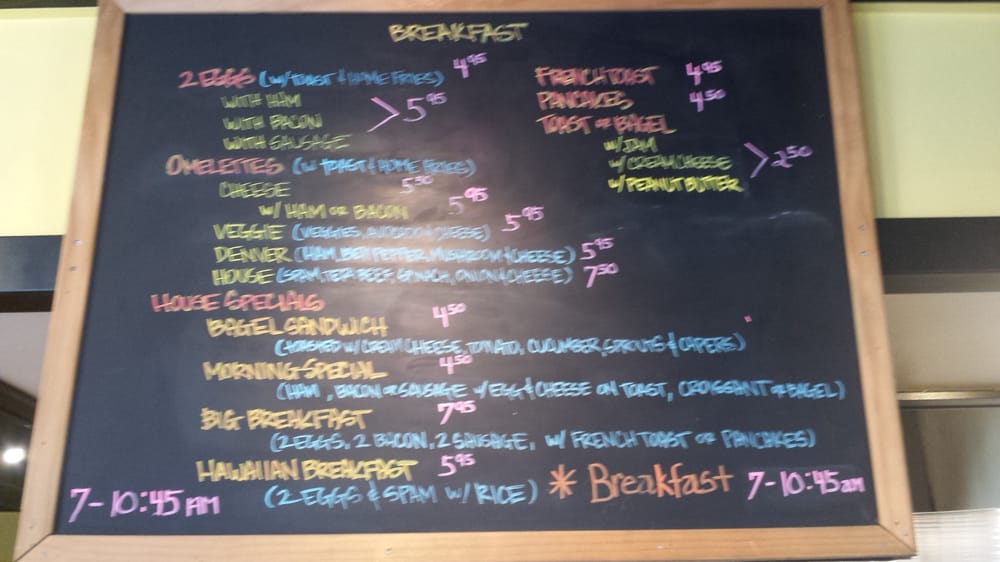 BREAKFAST
2 EGGS (W/TOAST & HOME FRIES) 4.95
WITH HAM
WITH BACON > 5.95
WITH SAUSAGE
OMELETTES (W/ TOAST & HOME FRIES)
CHEESE 5.50
W/ HAM OR BACON 5.95
VEGGIE (VEGGIES, AVOCADO & CHEESE) 5.95
DENVER (HAM, BELL PEPPER, MUSHROOM & CHEESE) 5.95
HOUSE (SPAM, TERI BEEF, SPINACH, ONION & CHEESE) 7.50
HOUSE SPECIALS
BAGEL SANDWICH 4.50
(TOASTED W/ CREAM CHEESE, TOMATO, CUCUMBER, SPROUTS & CAPERS)
MORNING SPECIAL 4.50
(HAM, BACON OR SAUSAGE W/ EGG & CHEESE ON TOAST, CROISSANT OR BAGEL)
BIG BREAKFAST 7.95
(2 EGGS, 2 BACON, 2 SAUSAGE, W/ FRENCH TOAST OR PANCAKES)
HAWAIIAN BREAKFAST 5.95
(2 EGGS & SPAM W/ RICE)
7-10:45 AM
FRENCH TOAST 4.95
PANCAKES 4.50
TOAST OR BAGEL
W/JAM
W/CREAM CHEESE > 2.50
W/PEANUT BUTTER
* Breakfast 7-10:45am